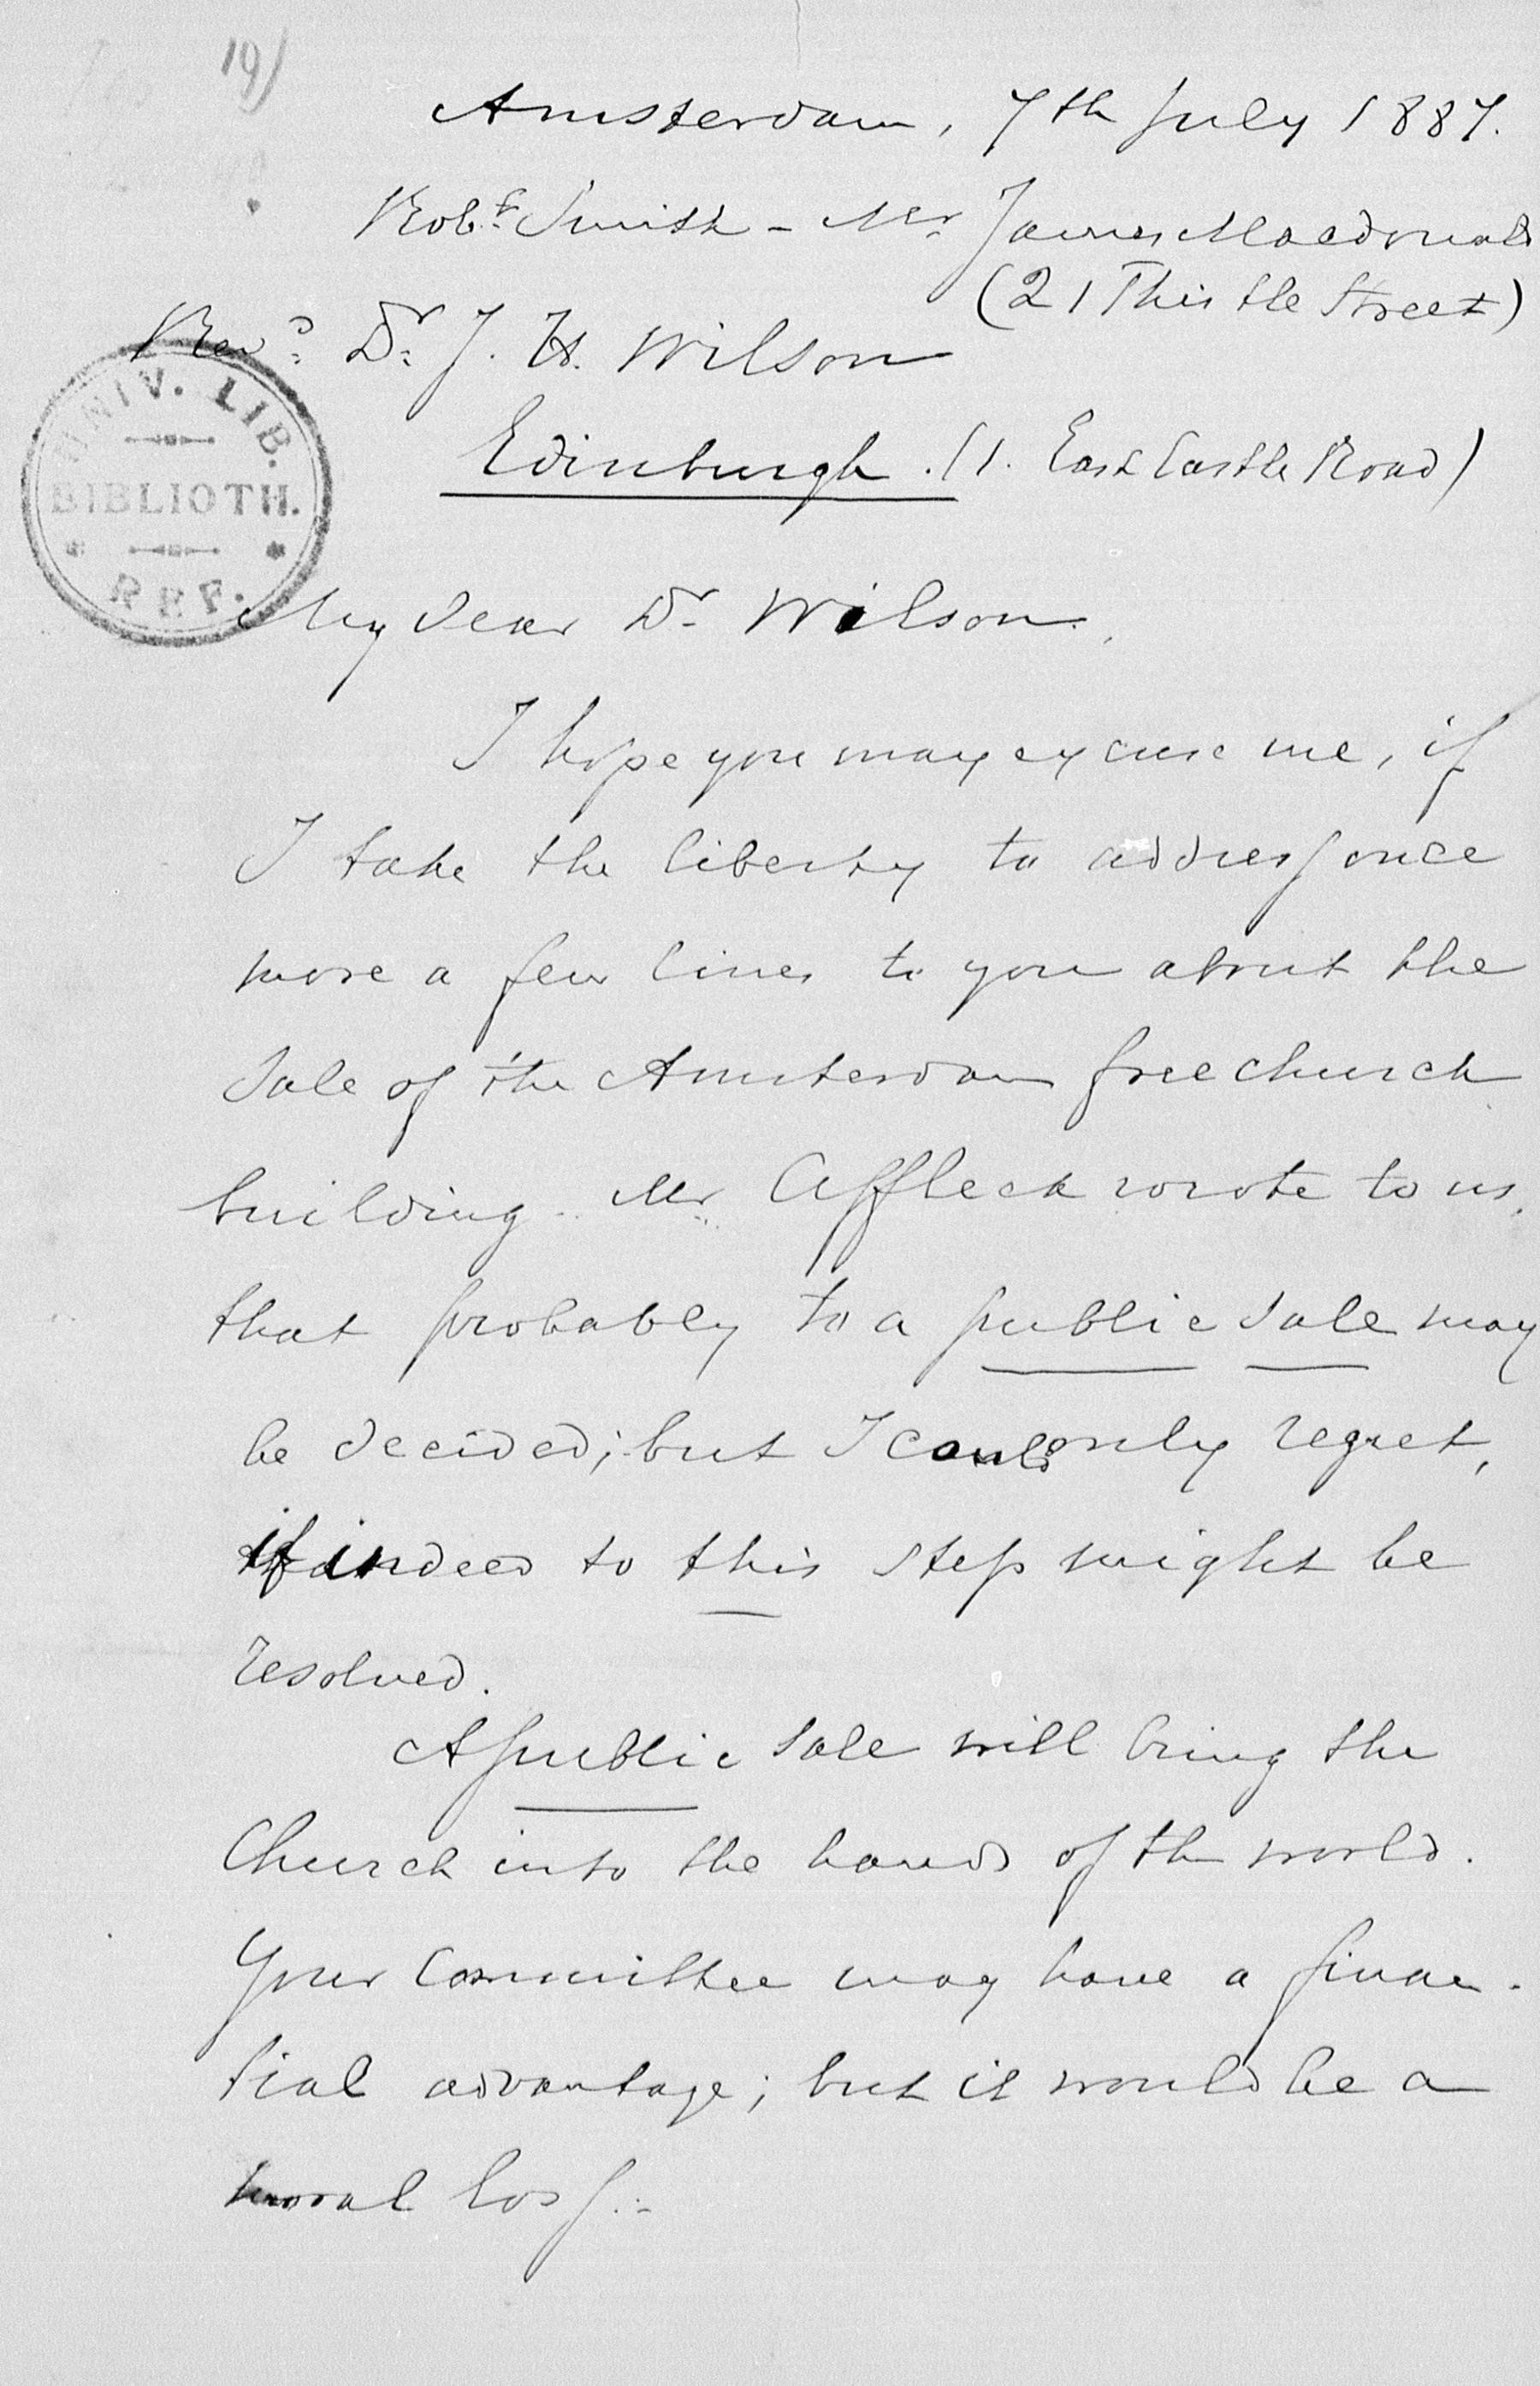 19)
Amsterdam, 7th July 1887.
Robt. Smith - Mr. James Macdonald
(21 Thistle Street)
Revd. Dr. J. H. Wilson
Edinburgh. (1. East Castle Road)
UNIV. LIB.
BIBLIOTH.
REF.
My dear Dr. Wilson.
I hope you may excuse me, if
I take the liberty to address once
more a few lines to you about the
Sale of the Amsterdam free church
building. Mr. Affleck wrote to us,
that probably to a public sale may
be decided; but I could only regret,
if indeed to this step might be
resolved.
A public sale will bring the
Church into the hands of the world.
Your Committee may have a finan-
tial advantage; but it would be a
moral loss.-